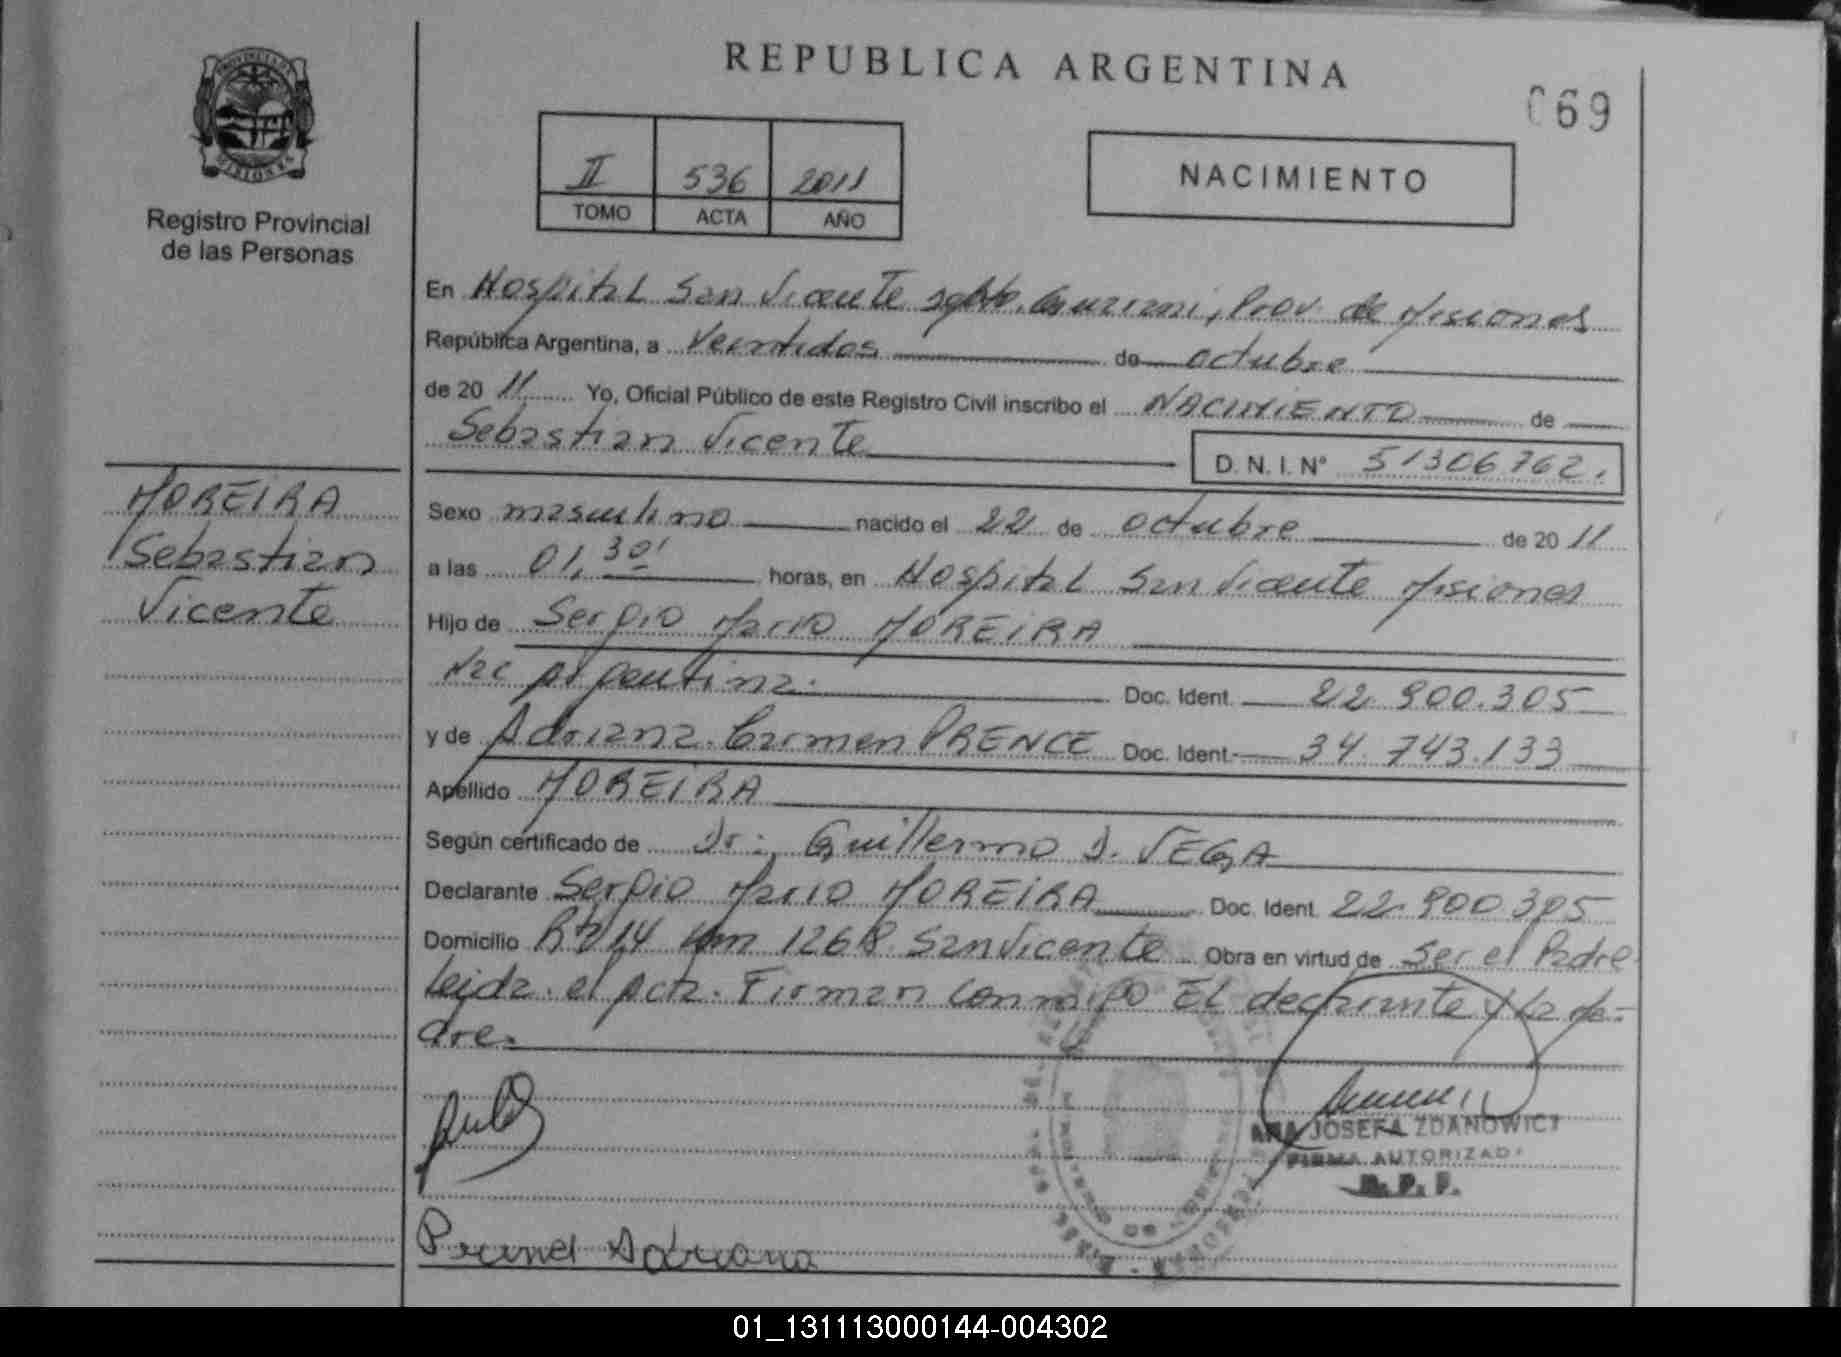 REPUBLICA ARGENTINA
069
PROVINCIA DE
MISIONES
Registro Provincial
de las Personas
II 536 2011
TOMO ACTA AÑO
NACIMIENTO
En Hospital San Vicente Dpto. Guarani, Prov. de Misiones
República Argentina, a Veintidos de octubre
de 2011 Yo, Oficial Público de este Registro Civil inscribo el NACIMIENTO de
Sebastian Vicente D. N. I. Nº 51306762.
MOREIRA
Sebastian
Vicente
Sexo masculino nacido el 22 de octubre de 2011
a las 01,30' horas, en Hospital San Vicente Misiones
Hijo de Sergio Mario MOREIRA
Nac Argentina. Doc. Ident. 22.900.305
y de Adriana Carmen PRENCE Doc. Ident. 34.743.133
Apellido MOREIRA
Según certificado de Dr: Guillermo D. VEGA
Declarante Sergio Mario MOREIRA Doc. Ident. 22.900.305
Domicilio Rta 14 Km 1268 San Vicente Obra en virtud de Ser el Padre
Leida el Acta. Firman conmigo El declarante y La Ma-
dre.
ANA JOSEFA ZDANOWICZ
FIRMA AUTORIZADA
R. P. P.
Adriana
01_131113000144-004302